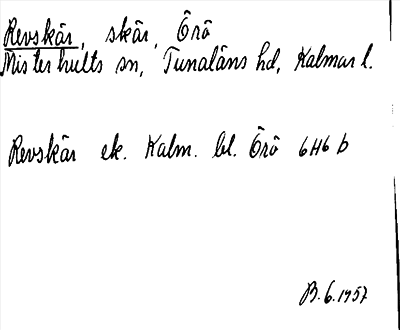 Revskär, skär, Örö
Misterhults sn, Tunaläns hd, Kalmar l.
Revskär ek. Kalm. bl. Örö 6H6 b
B. 6. 1957